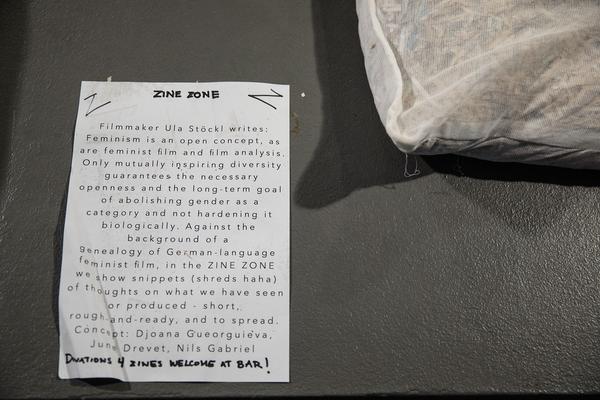 ZINE ZONE
Filmmaker Ula Stöckl writes:
Feminism is an open concept, as
are feminist film and film analysis.
Only mutually inspiring diversity
guarantees the necessary
openness and the long-term goal
of abolishing gender as a
category and not hardening it
biologically. Against the
background of a
genealogy of German-language
feminist film, in the ZINE ZONE
we show snippets (shreds haha)
of thoughts on what we have seen
or produced - short,
rough-and-ready, and to spread.
Concept: Djoana Gueorguieva,
June Drevet, Nils Gabriel
DONATIONS 4 ZINES WELCOME AT BAR!